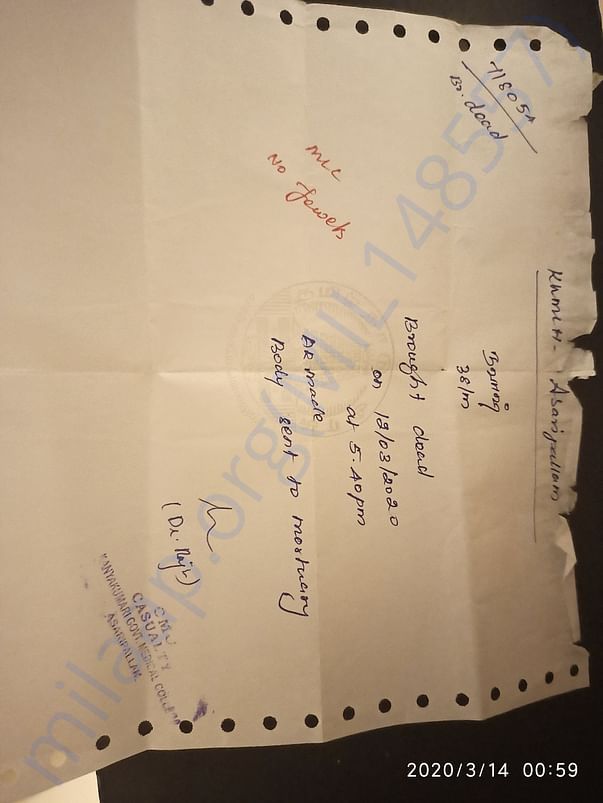 71805A
Br. dead
KGMCH - Asaripallam
38/m
Brought dead
on 12/03/2020
at 5.40pm
AR made
Body sent to mortuary
MLC
No Jewels
(Dr. Raju)
CMO
CASUALTY
KANYAKUMARI GOVT. MEDICAL COLLEGE
ASARIPALLAM.
milaap.org(MIL148557)
2020/3/14 00:59